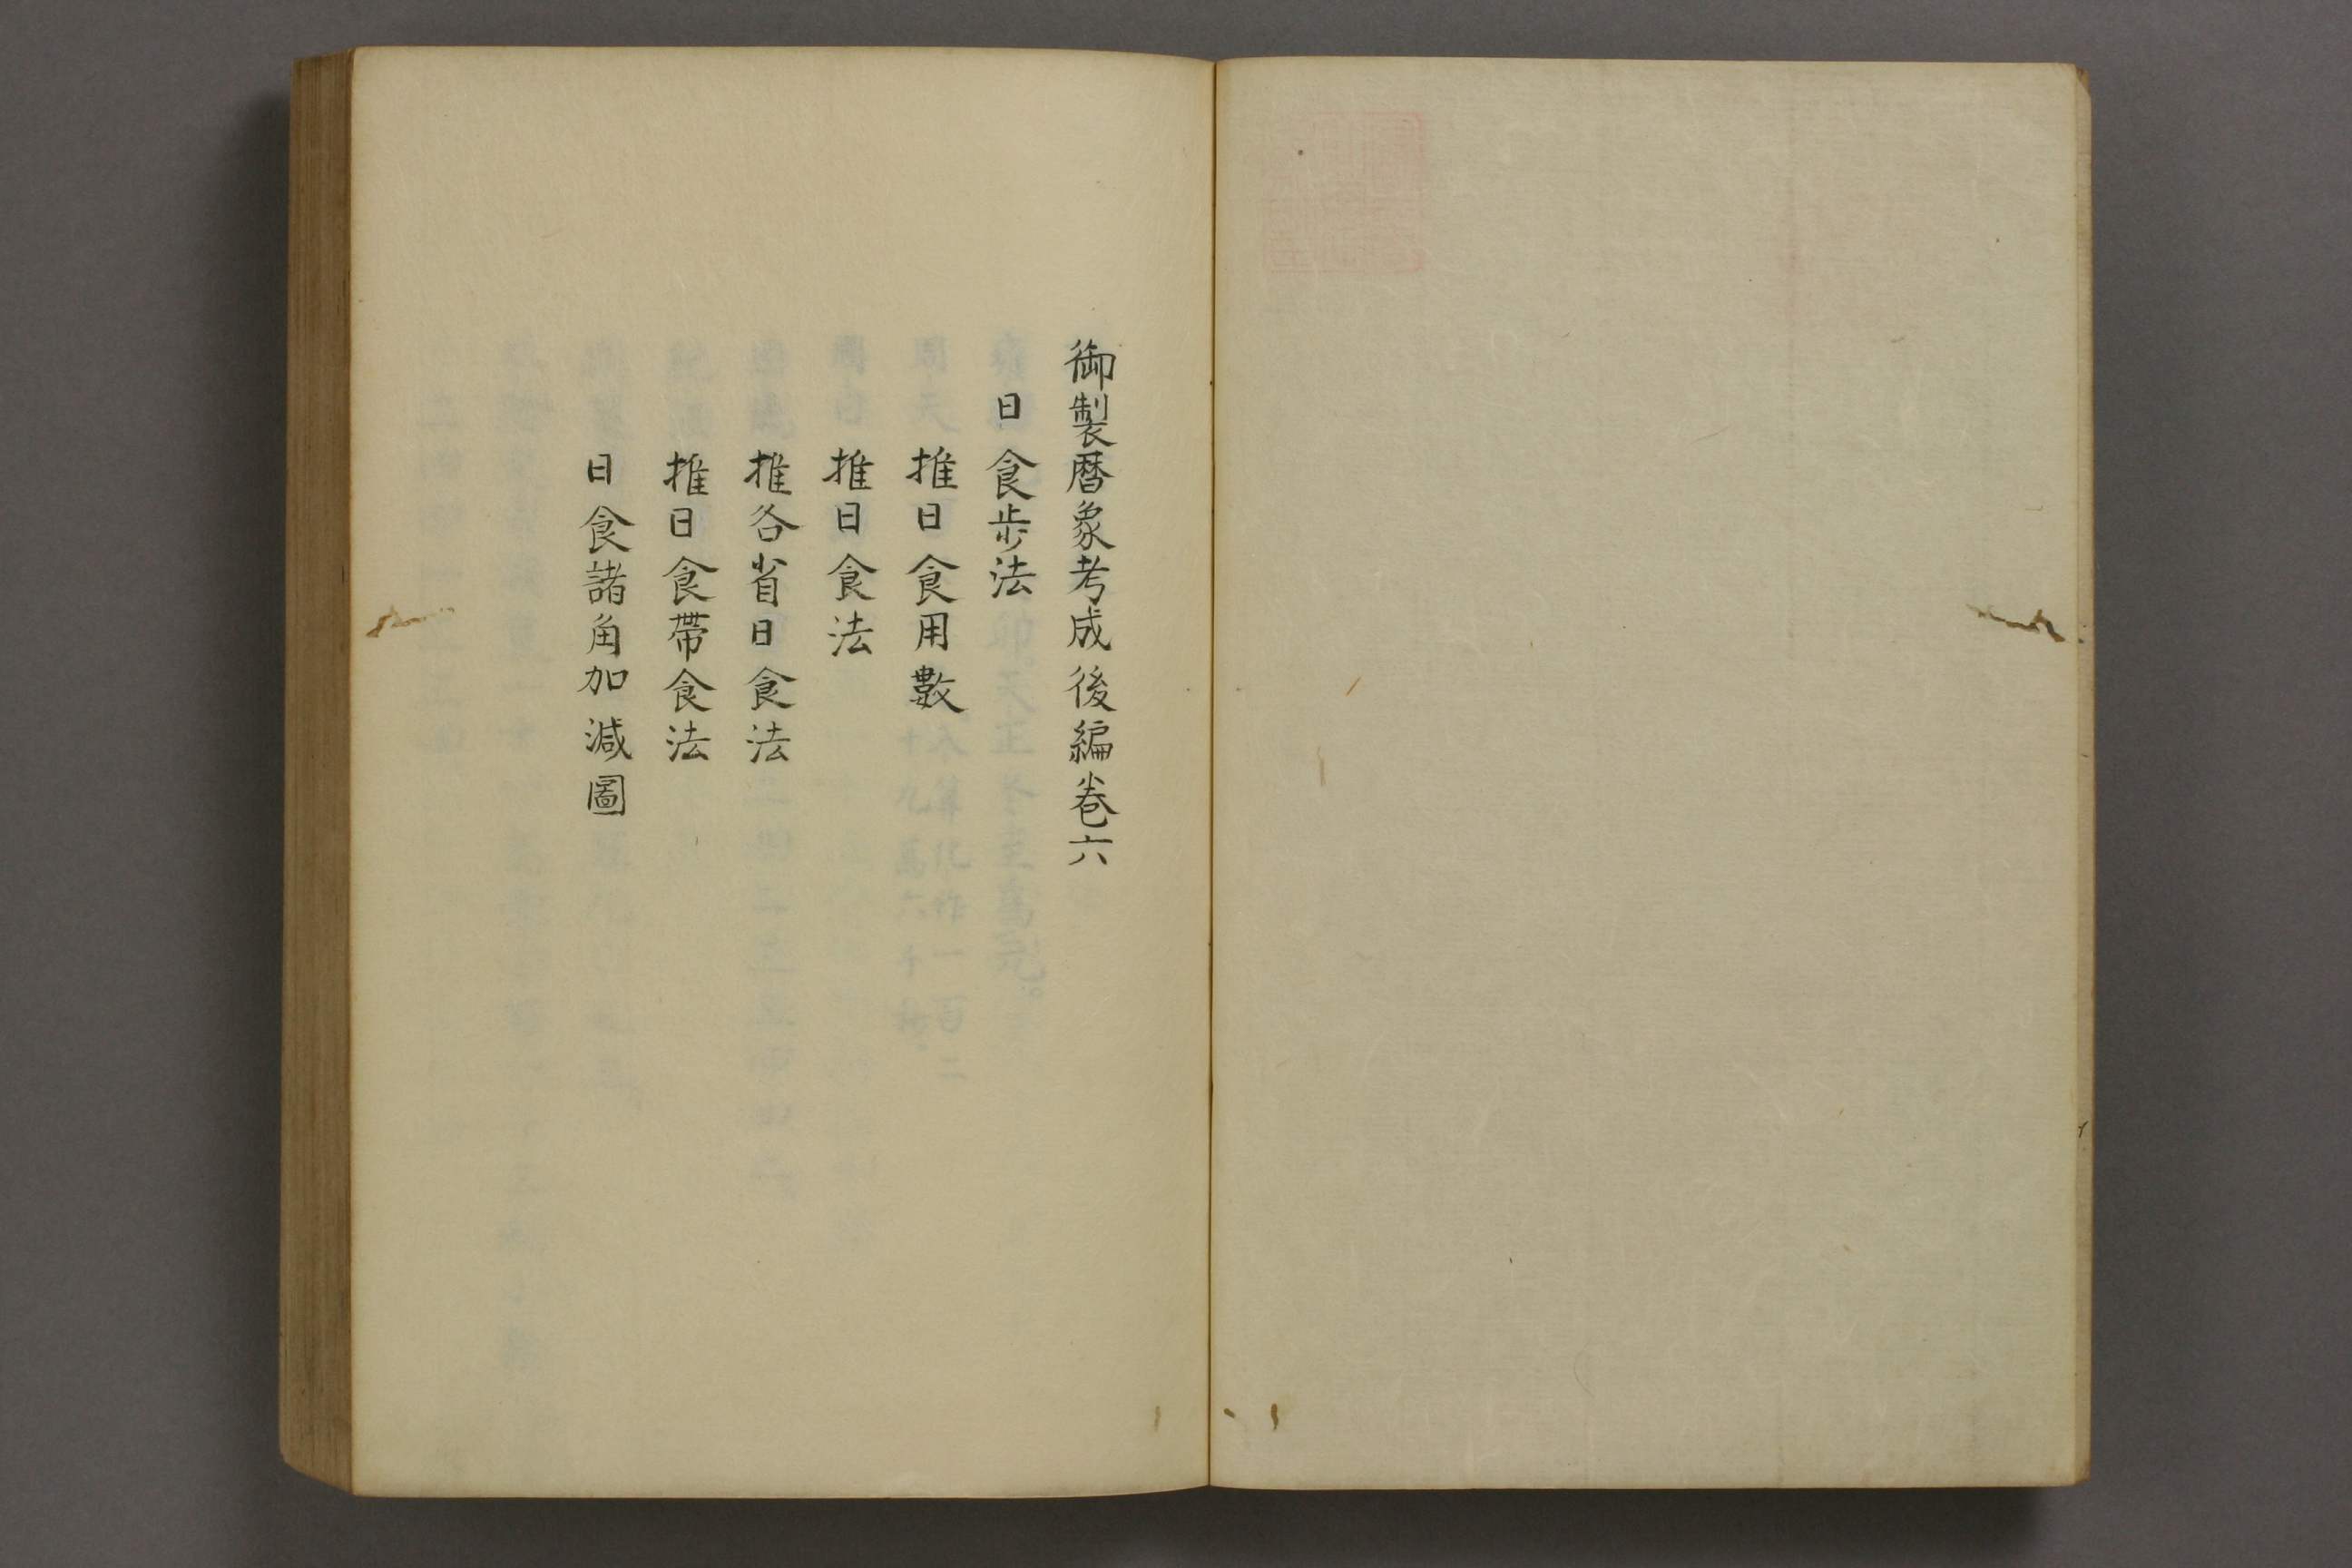 御製暦象考成後編巻六
日食歩法
推日食用數
推日食法
推各省日食法
推日食帶食法
日食諸角加減圖